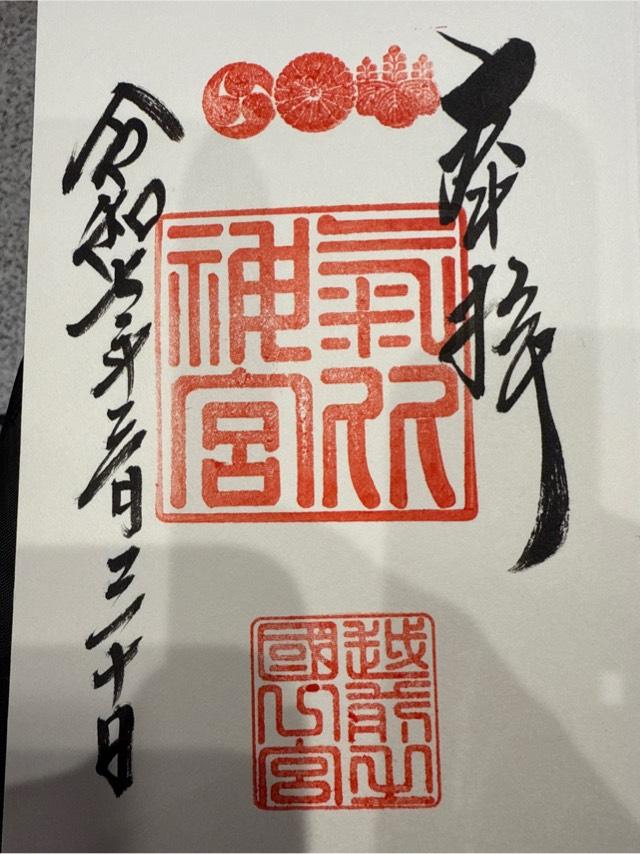 奉拝
氣比
神宮
越前之
國宮
令和七年三月三十日